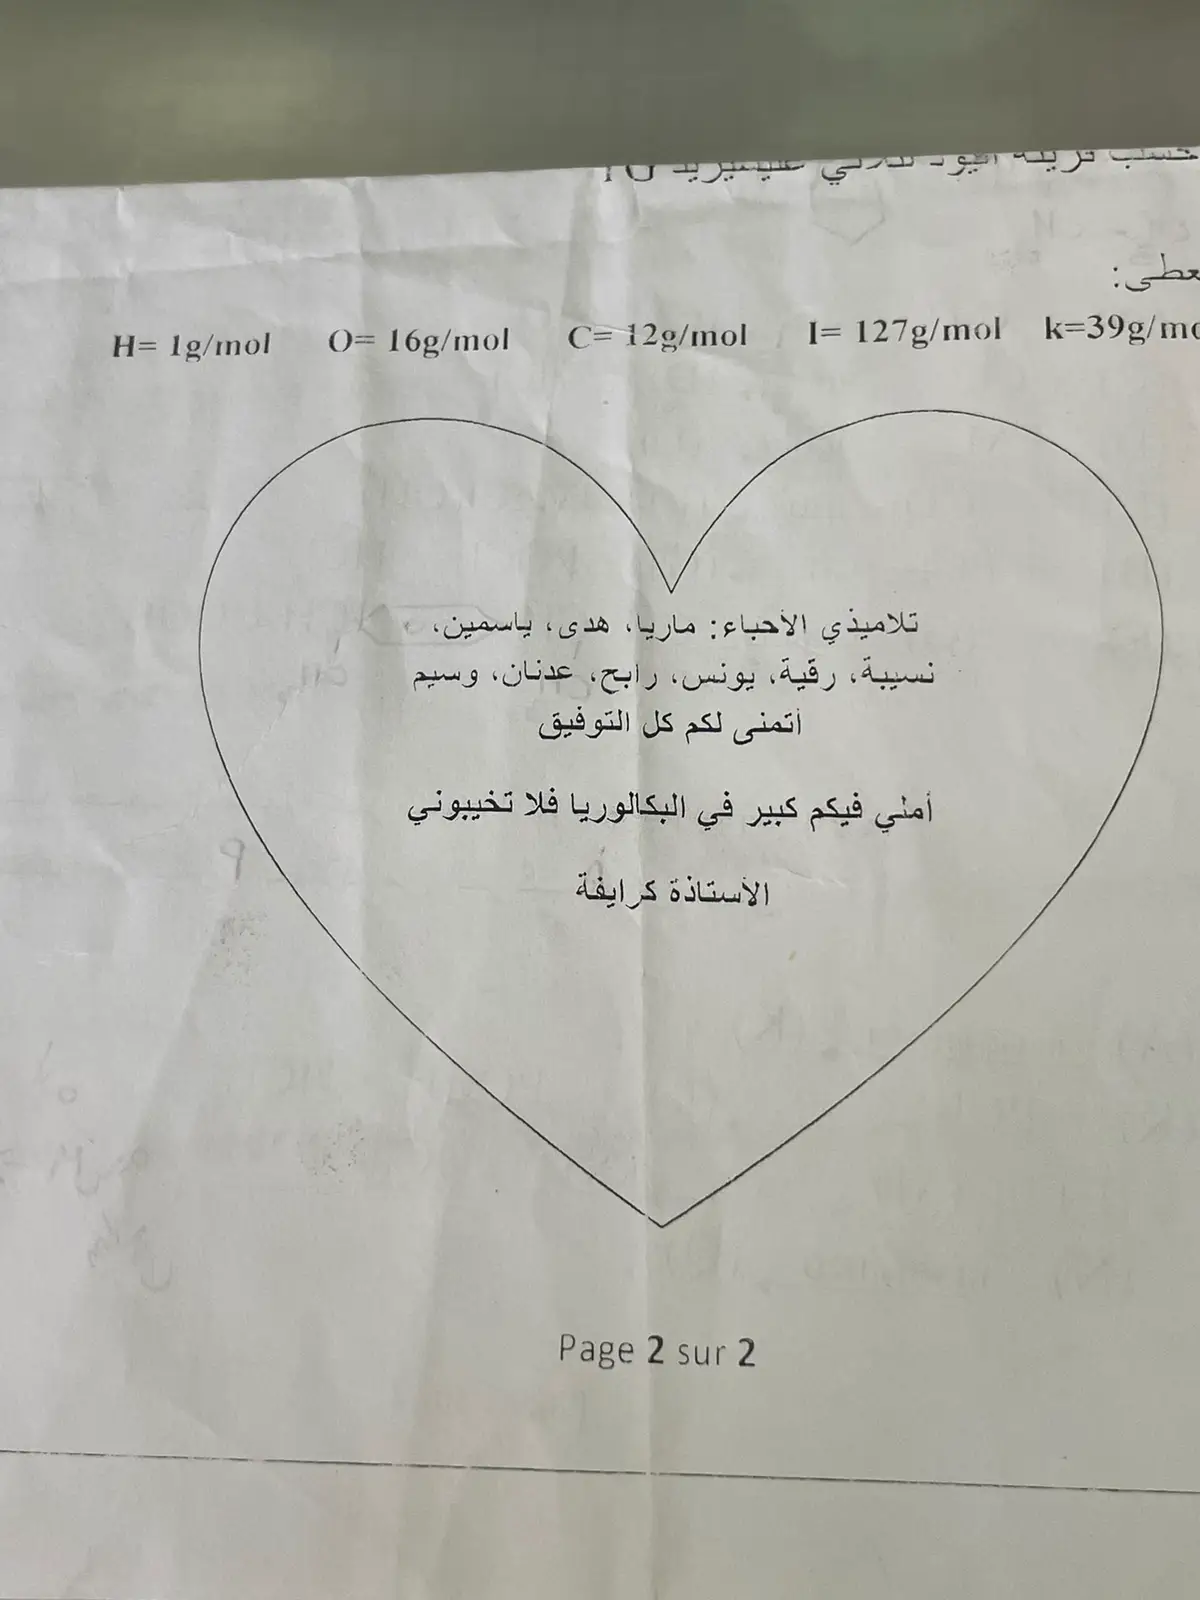 يعطى:
H= 1g/mol O= 16g/mol C= 12g/mol I= 127g/mol k=39g/mo
تلاميذي الأحباء: ماريا، هدى، ياسمين،
نسيبة، رقية، يونس، رابح، عدنان، وسيم
أتمنى لكم كل التوفيق
أملي فيكم كبير في البكالوريا فلا تخيبوني
الأستاذة كرايفة
Page 2 sur 2